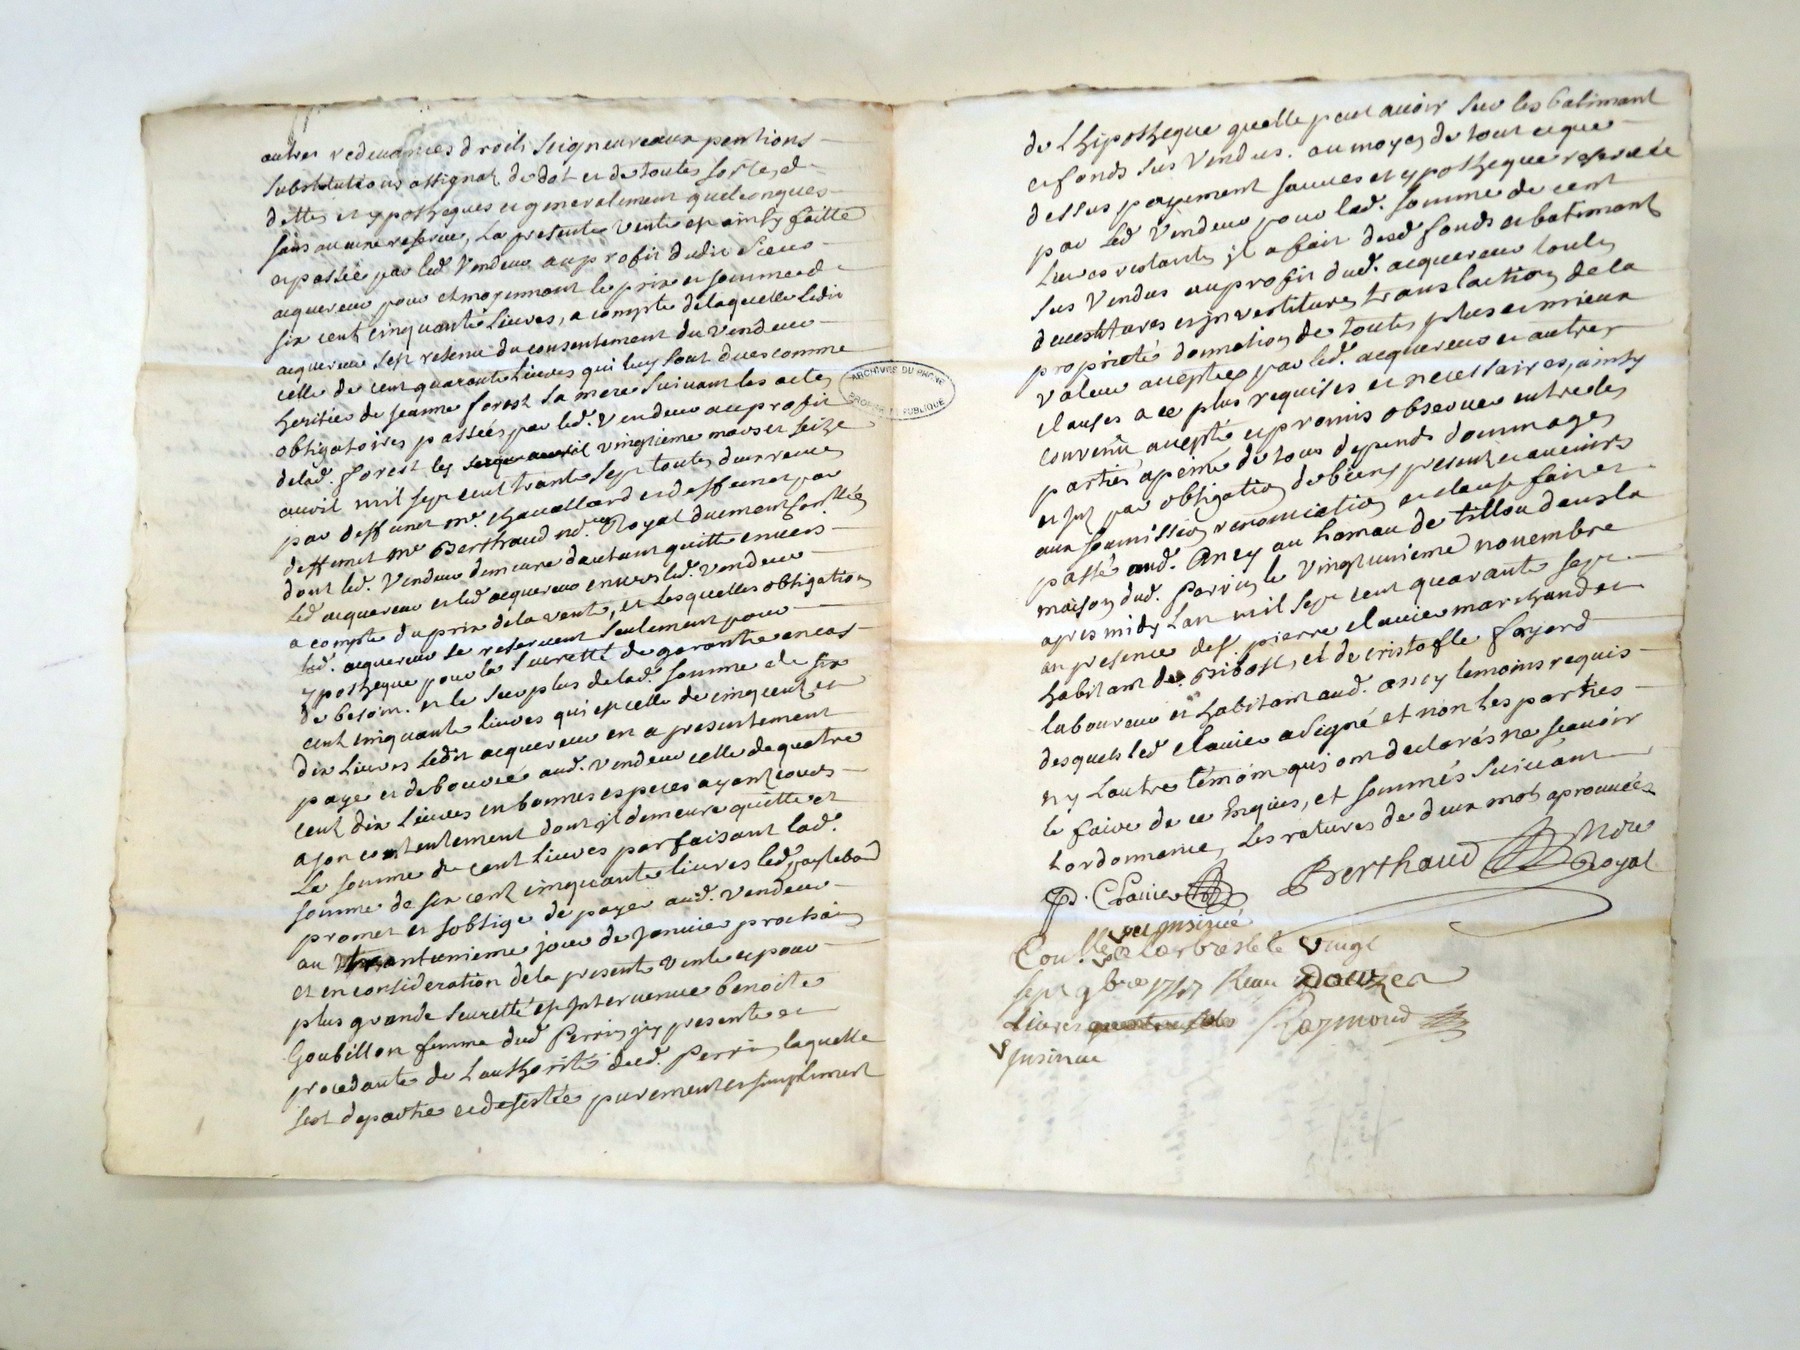 autres redevances droits seigneureaux pentions
substitutions assignat de dot et de toutes sortes de
dettes et ypotheques et generalement quelconques
sans aucune reserve, La presente vente est ainsy faitte
et passée par led. Vendeur au profit dudit Sieur
acquereur pour et moyennant le prix et somme de
six cent cinquante Livres, a compte de laquelle ledit
acquereur s'est retenu du consentement du vendeur
celle de cent quarante Livres qui luy sont dues comme
heritier de jeanne forest sa mere suivant les actes
obligatoires passées par led. Vendeur au profit
de lad. forest les vingtieme mars et seize
avril mil sept cent trante sept toutes deux receues
par deffunct me. chavallard et deffunct par
deffunct me Berthaud no.re Royal duement
dont led. Vendeur demeure dautant quitte envers
Led acquereur et led acquereur envers led. Vendeur
a compte du prix de la vente, et Lesquelles obligations
led. acquereur se reservent seulement pour
ypotheque pour la suretté de garantie en cas
de besoin. et le surplus de lad. somme de six
cent cinquante livres qui est celle de cinq cent et
dix Livres Ledit acquereur en a presentement
payé et debourcé aud. Vendeur celle de quatre
cent dix Livres en bonnes especes ayant cours
a son contentement dont il demeure quitte et
La somme de cent Livres parfaisant lad.
somme de six cent cinquante livres led
promet et soblige de payer aud. Vendeur
au trantunieme jour de janvier prochain
et en consideration de la presente vente et pour
plus grande seuretté est intervenue benoite
Goubillon femme dud Perrin icy presente et
procedante de Lauthorité dud. Perrin laquelle
sest departie et desistée purement et simplement
ARCHIVES DU RHONE
PUBLIQUE
de Lhipotheque quelle peut avoir sur les batimant
et fonds sus vendus. au moyen de tout ce que
dessus payement sauves et ypotheque reservée
par Led Vendeur pour lad. somme de cent
Livres restantes il a fait desd fonds et batimants
sus Vendus au profit dud. acquereur toutes
devestitures et investitures translation de la
proprieté donnation de toutes plus et mieux
valeur acceptée par led. acquereur et autres
clauses a ce plus requises et necessaires, ainsy
convenu accepté et promis observer entre les
parties apeine de tous depends dommages
et jnt par obligation de biens presents et avenirs
aux soumission renonciation et clause fait et
passé aud. Ancy au hameau de Tillou dans la
maison dud. Parrin le vingtunieme novembre
apres midy Lan mil sept cent quarante sept
en presence de s. pierre Clavier marchand et
habitant de Bibost, et de cristofle fayard
laboureur et habitant aud. ancy temoins requis
desquels led Clavier a signé et non les parties
ny Lautre témoin qui ont declarés ne scavoir
le faire de ce Enquis, et sommés suivant
Lordonnance, Les ratures de deux mots aprouvées
P. Clavier Berthaud No.re
Royal
et insinué
Con.llé a larbresle le vingt
sept 9bre 1747 Receu Douze
Livres Raymond
insinue